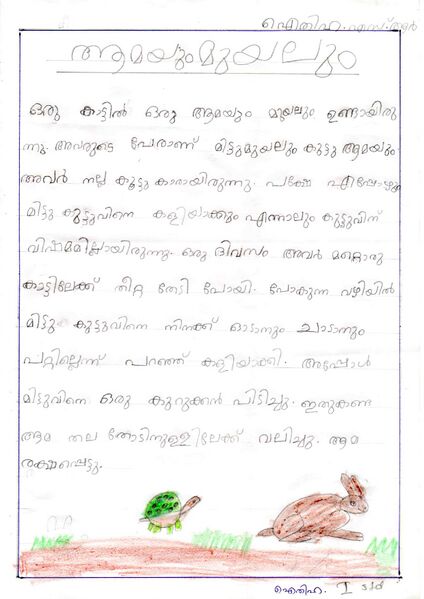 ഐതിഹ. എസ്. ആർ
ആമയും മുയലും
ഒരു കാട്ടിൽ ഒരു ആമയും മുയലും ഉണ്ടായിരു
ന്നു. അവരുടെ പേരാണ് മിട്ടുമുയലും കുട്ടു ആമയും.
അവർ നല്ല കൂട്ടുകാരായിരുന്നു. പക്ഷേ എപ്പോഴും
മിട്ടു കുട്ടുവിനെ കളിയാക്കും എന്നാലും കുട്ടുവിന്
വിഷമമില്ലായിരുന്നു. ഒരു ദിവസം അവർ മറ്റൊരു
കാട്ടിലേക്ക് തീറ്റ തേടി പോയി. പോകുന്ന വഴിയിൽ
മിട്ടു കുട്ടുവിനെ നിനക്ക് ഓടാനും ചാടാനും
പറ്റില്ലെന്ന് പറഞ്ഞ് കളിയാക്കി. അപ്പോൾ
മിട്ടുവിനെ ഒരു കുറുക്കൻ പിടിച്ചു. ഇതുകണ്ട
ആമ തല തോടിനുള്ളിലേക്ക് വലിച്ചു. ആമ
രക്ഷപ്പെട്ടു.
ഐതിഹ. I std